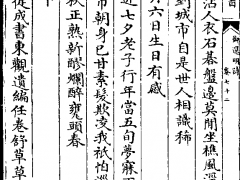 御選明詩 卷七十二
沾人衣石碁盤邊莫閒坐樵風溼
到城市自是世人相識稀
六日生日有感
近七夕老子行年當五旬夢寐
市朝身已甘素髮欺支我秖怕
秋正熟新醪爛醉甕頭春
從成書東觀遺編任卷舒草草